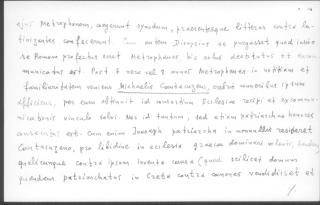 ejus Metrophanem, coegerunt synodum, praesentesque litteras contra la-
tinizantes confecerunt. Cum autem Dionysius se purgasset quod invito
se Romam profectus erat Metrophanes bis solus destitutus et excom
municatus est. Post 7 vero vel 8 annos Metrophanes in notitiam et
familiaritatem veniens Michaelis Cantacuzeni, crebris muneribus ipsum
efficiens, per eum obtinuit id consortium Ecclesiae recipi et excommu-
nicationis vinculo solvi. Nec id tantum, sed etiam patriarcha honores
est. Cum enim Joaseph patriarcha in nonnullis resisteret
Cantacuzeno, pro libidine in ecclesia graeca dominari volenti,
qualicunque contra ipsum inventa causa (quod scilicet domum
quendam patriarchatus in Creta contra canones vendidisset et